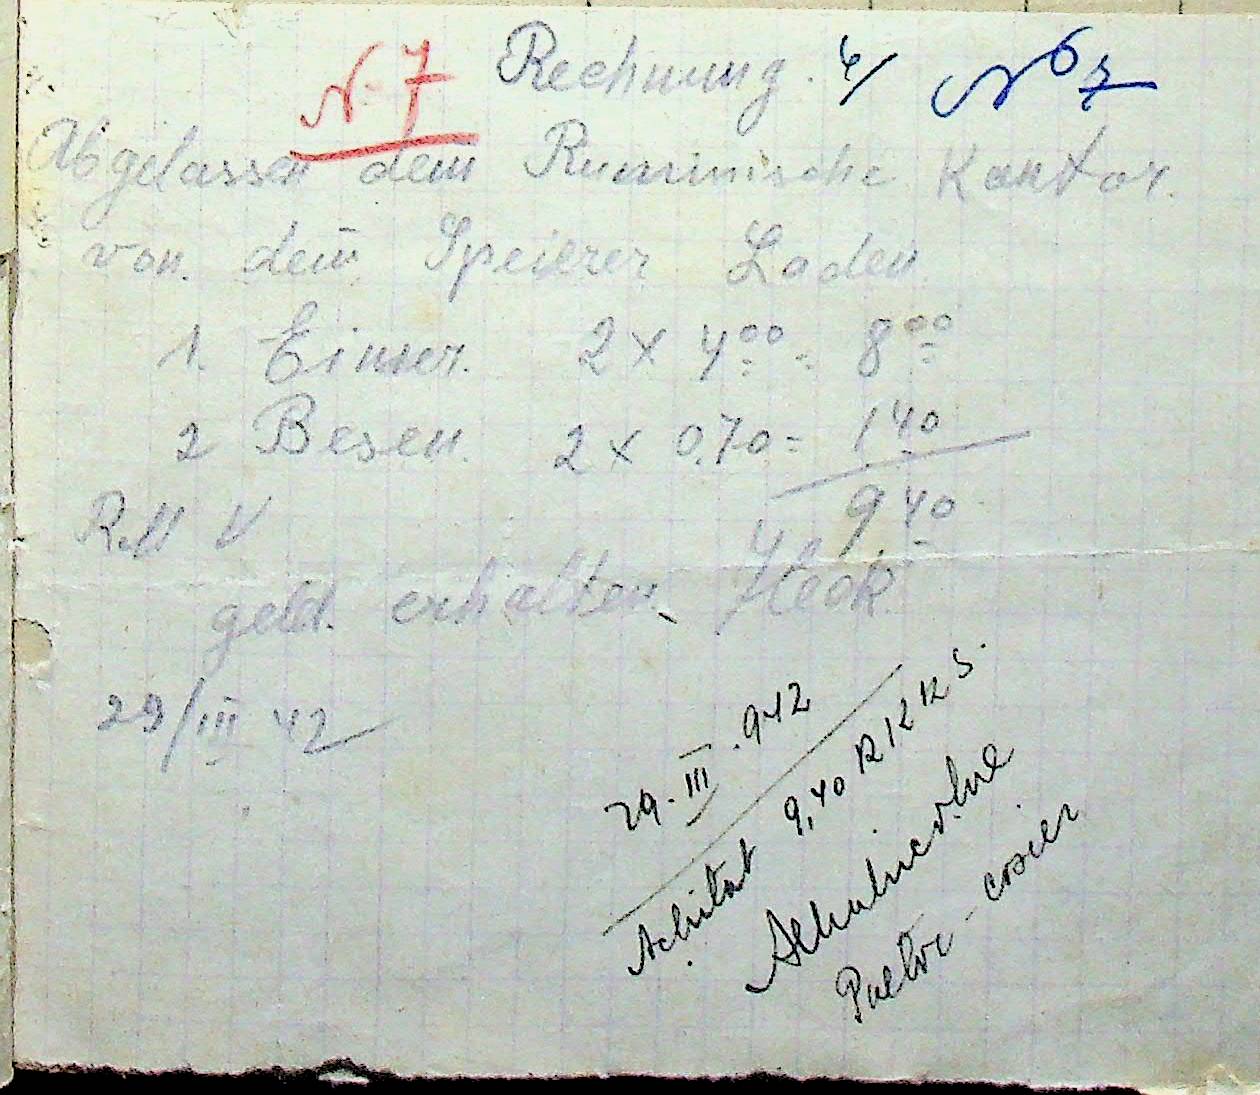 N 7 Rechnung. N⁰ 7
Abgelassen dem Ruminische Kontor.
von dem Speierer Laden
1. Eimer. 2 x 4⁰⁰ = 8⁰⁰
2 Besen. 2 x 0.70 = 1 40
9 40
geld. erhalten Heck
29/III 42
29.III.942
Achitat 9,40 RKKS.